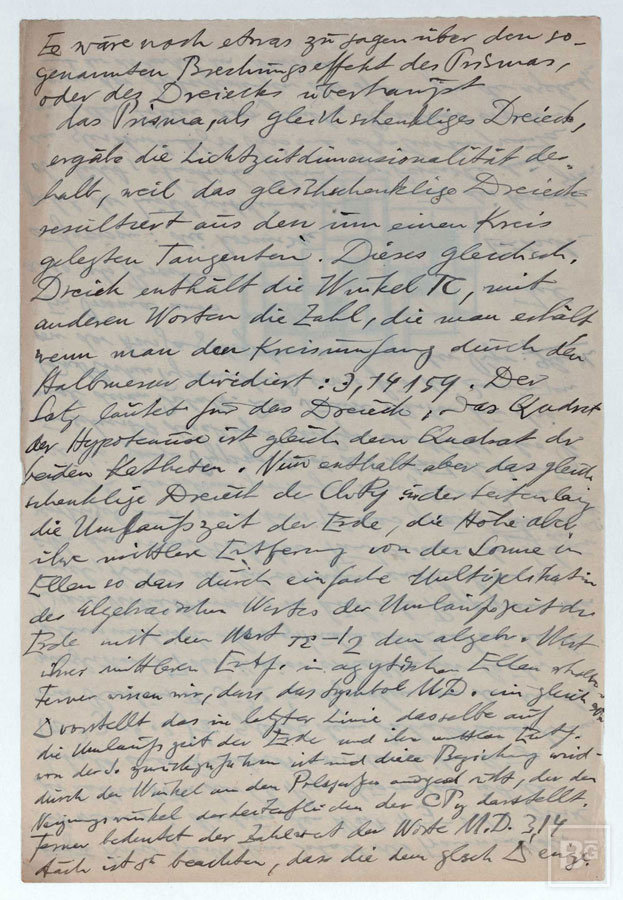 Es wäre noch etwas zu sagen über den so-
genannten Brechungseffekt des Prismas,
oder des Dreiecks überhaupt
das Prisma, als gleichschenkliges Dreieck,
ergäbe die Lichtzeitdimensionalität des-
halb, weil das gleichschenklige Dreieck
resultiert aus den um einen Kreis
gelegten Tangenten. Dieses gleichsch.
Dreieck enthält die Winkel π, mit
anderen Worten die Zahl, die man erhält
wenn man den Kreisumfang durch den
Halbmesser dividiert: 3,14159. Der
Satz lautet für das Dreieck, das Quadrat
der Hypotenuse ist gleich dem Quadrat der
beiden Katheten. Nun enthält aber das gleich
schenklige Dreieck der in der Seitenlänge
die Umlaufszeit der Erde, die Höhe aber
ihre mittlere Entfernung von der Sonne in
Ellen so dass durch einfache Multiplikation
des algebraischen Wertes der Umlaufszeit der
Erde mit dem Wert dem algebr. Wert
ihrer mittleren Entf. in ägyptischen Ellen
Ferner wissen wir, dass das Symbol M.D. ein gleich
Δ vorstellt das in letzter Linie dasselbe auf
die Umlaufszeit der Erde und ihre mittlere Entf.
von der So. zurückzuführen ist und diese Beziehung wird
durch der Winkel an den, der den
Neigungswinkel der Seitenflächen der darstellt.
Ferner bedeutet der Zahlwert der Worte M.D. 3,14
Auch ist zu beachten, dass die dem gleich Δ
BG